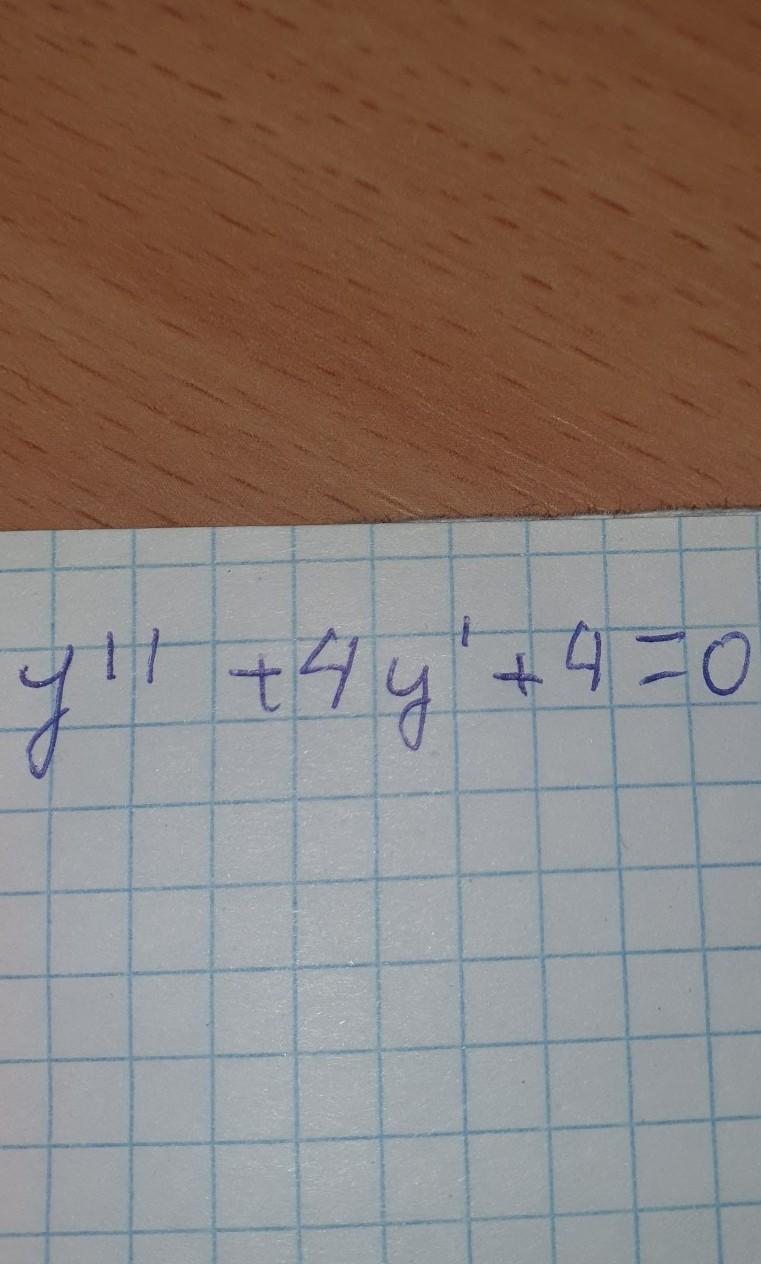 y'' + 4y' + 4 = 0